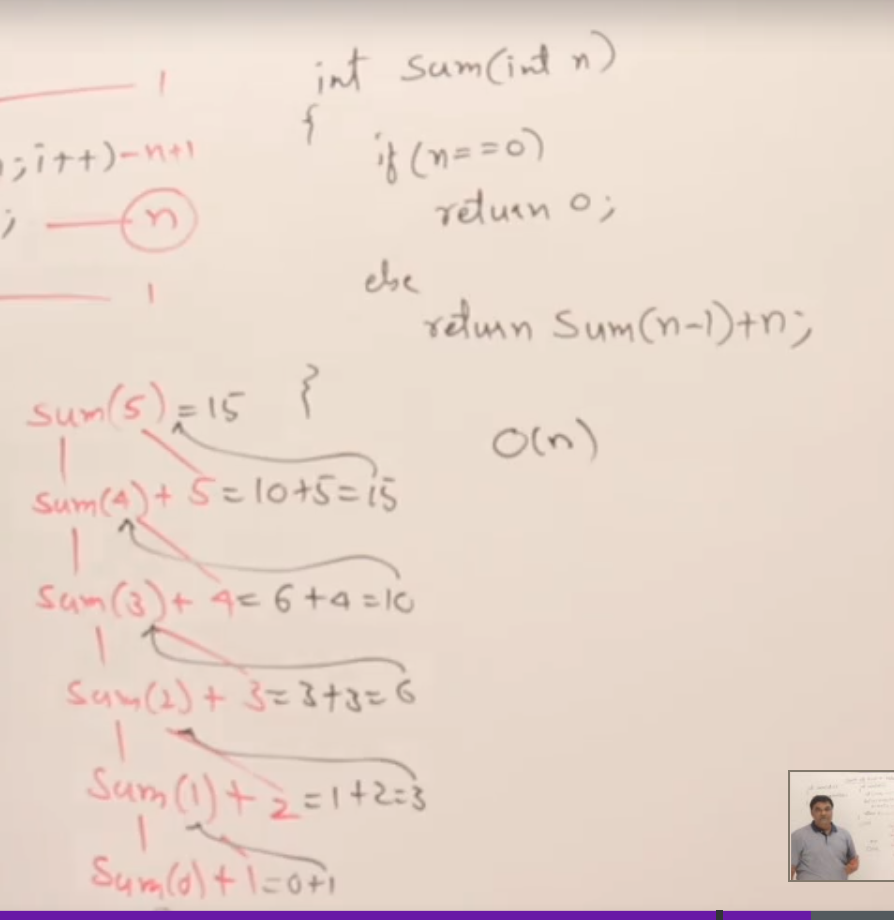 1
;i++) - n+1
; n
1
int sum(int n)
{
if(n==0)
return 0;
else
return Sum(n-1)+n;
}
O(n)
sum(5) = 15
sum(4) + 5 = 10+5 = 15
sum(3) + 4 = 6+4 = 10
sum(2) + 3 = 3+3 = 6
sum(1) + 2 = 1+2 = 3
sum(0) + 1 = 0+1